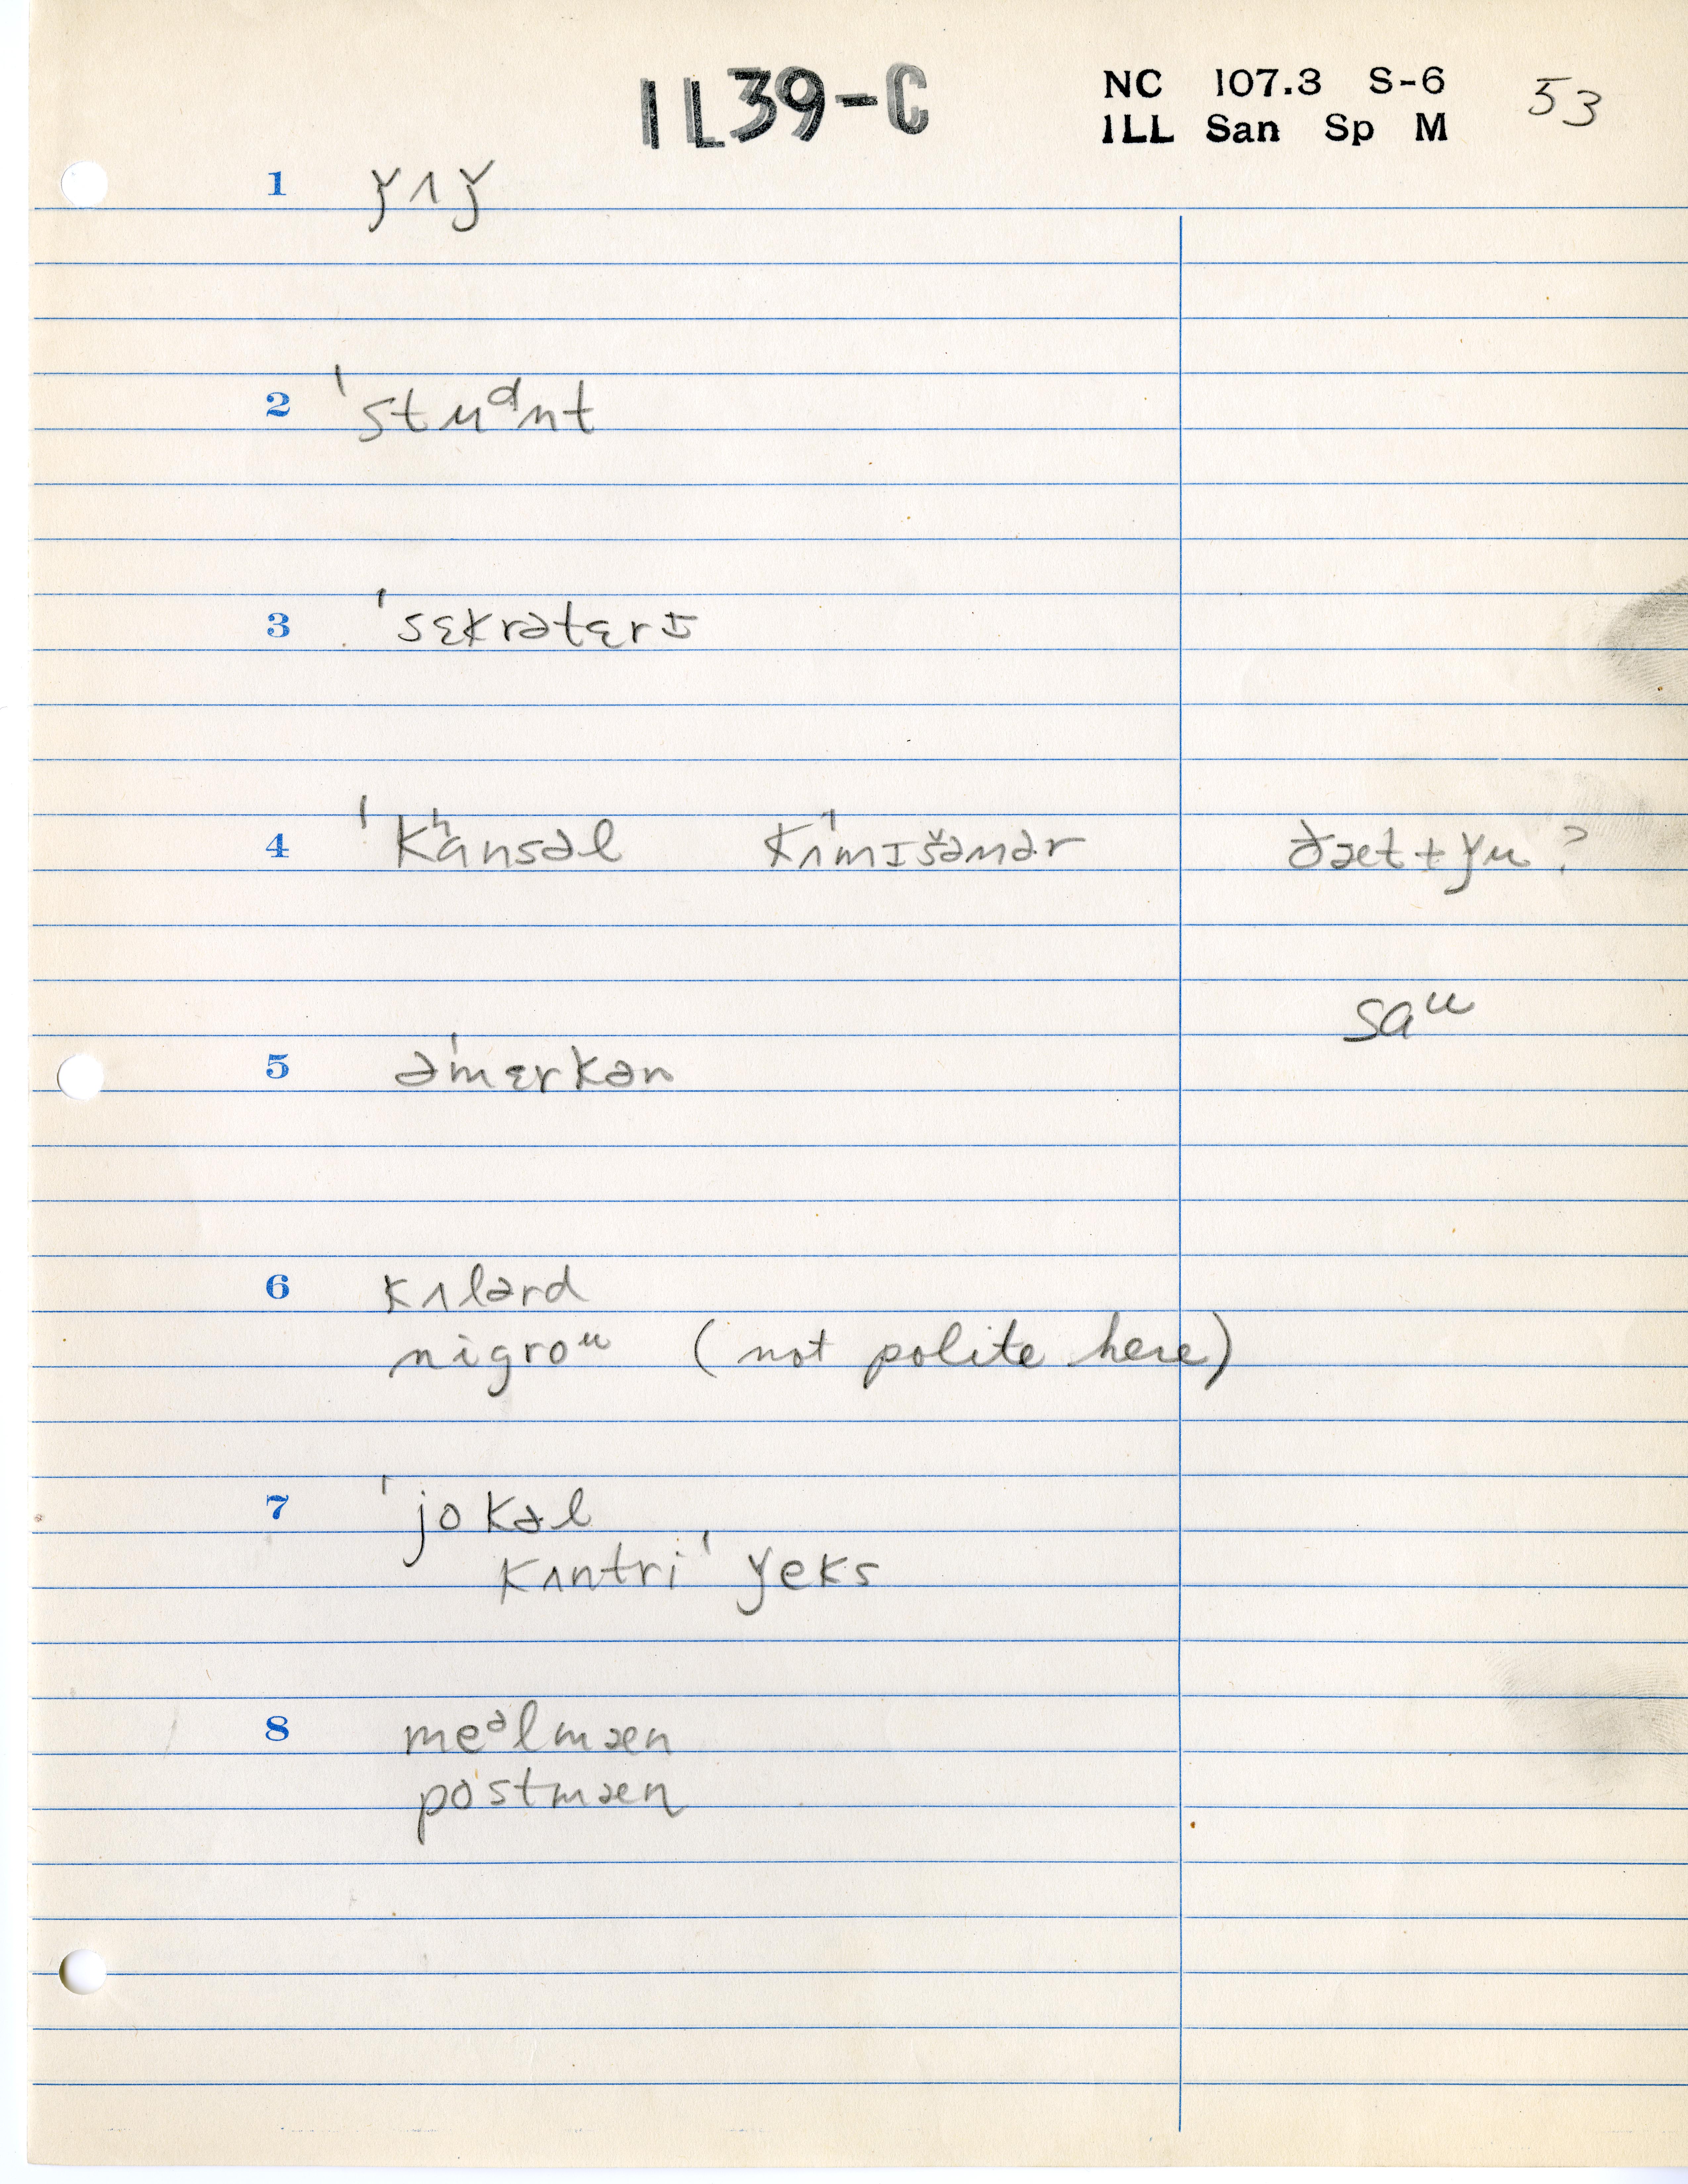 IL39-C
NC 107.3 S-6
ILL San Sp M
53
1 ǰʌǰ
2 ˈstuᵈnt
3 ˈsɛkrətɛrɪ
4 ˈkʰansəl kʌˈmɪšənər ðæt ɨ ǰu?
saᵘ
5 əˈmɛrkən
6 kʌlərd
nigroᵘ (not polite here)
7 ˈjokəl
kʌntriˈ ǰeks
8 meᵊlmæn
postmæn